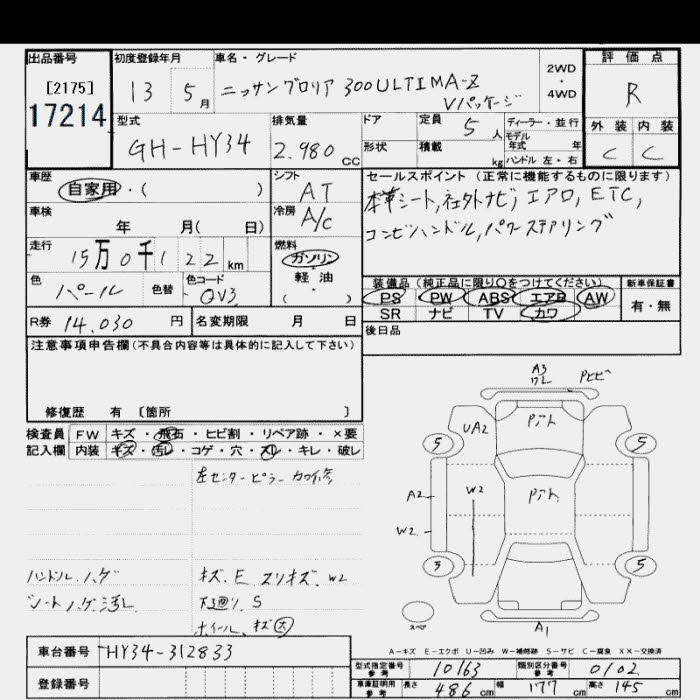 出品番号
[2175]
17214
初度登録年月
13 5月
車名・グレード
ニッサングロリア 300ULTIMA-Z
Vパッケージ
2WD
・
4WD
評価点
R
外装 内装
C C
型式
GH-HY34
排気量
2.980 CC
ドア
形状
定員 5 人
積載 kg
ディーラー・並行
モデル
年式 年
ハンドル 左・右
車歴
自家用・( )
車検
年 月( 日)
走行
15万0千122km
色
パール
色替
色コード
QV3
シフト
AT
冷房
A/C
燃料
ガソリン
軽油
・
( )
セールスポイント (正常に機能するものに限ります)
本革シート,社外ナビ,エアロ,ETC,
コンビハンドル,パワーステアリング
装備品(純正品に限り○をつけてください)
PS PW ABS エアB AW
SR ナビ TV カワ
新車保証書
有・無
後日品
R券 14.030 円
名変期限 月 日
注意事項申告欄(不具合内容等は具体的に記入して下さい)
修復歴 有 〔箇所 〕
検査員
記入欄
FW キズ・飛石・ヒビ割・リペア跡・×要
内装 キズ・汚レ・コゲ・穴・スレ・キレ・破レ
左センターピラー カワ修
ハンドル ハゲ
シートハゲ汚レ
キズ、E スリキズ、W2
下廻り、S
ホイール、キズ大
A3
ワレ
Pトビ
UA2
Pアト
5
5
A2
W2
W2
Pアト
5
5
スペア
A1
A-キズ E-エクボ U-凹み W-補修跡 S-サビ C-腐食 XX-交換済
車台番号 HY34-312833
登録番号
型式指定番号
参考
10163
類別区分番号
参考
0102
車庫証明用
参考
長さ 486 cm
幅 177 cm
高さ 145 cm